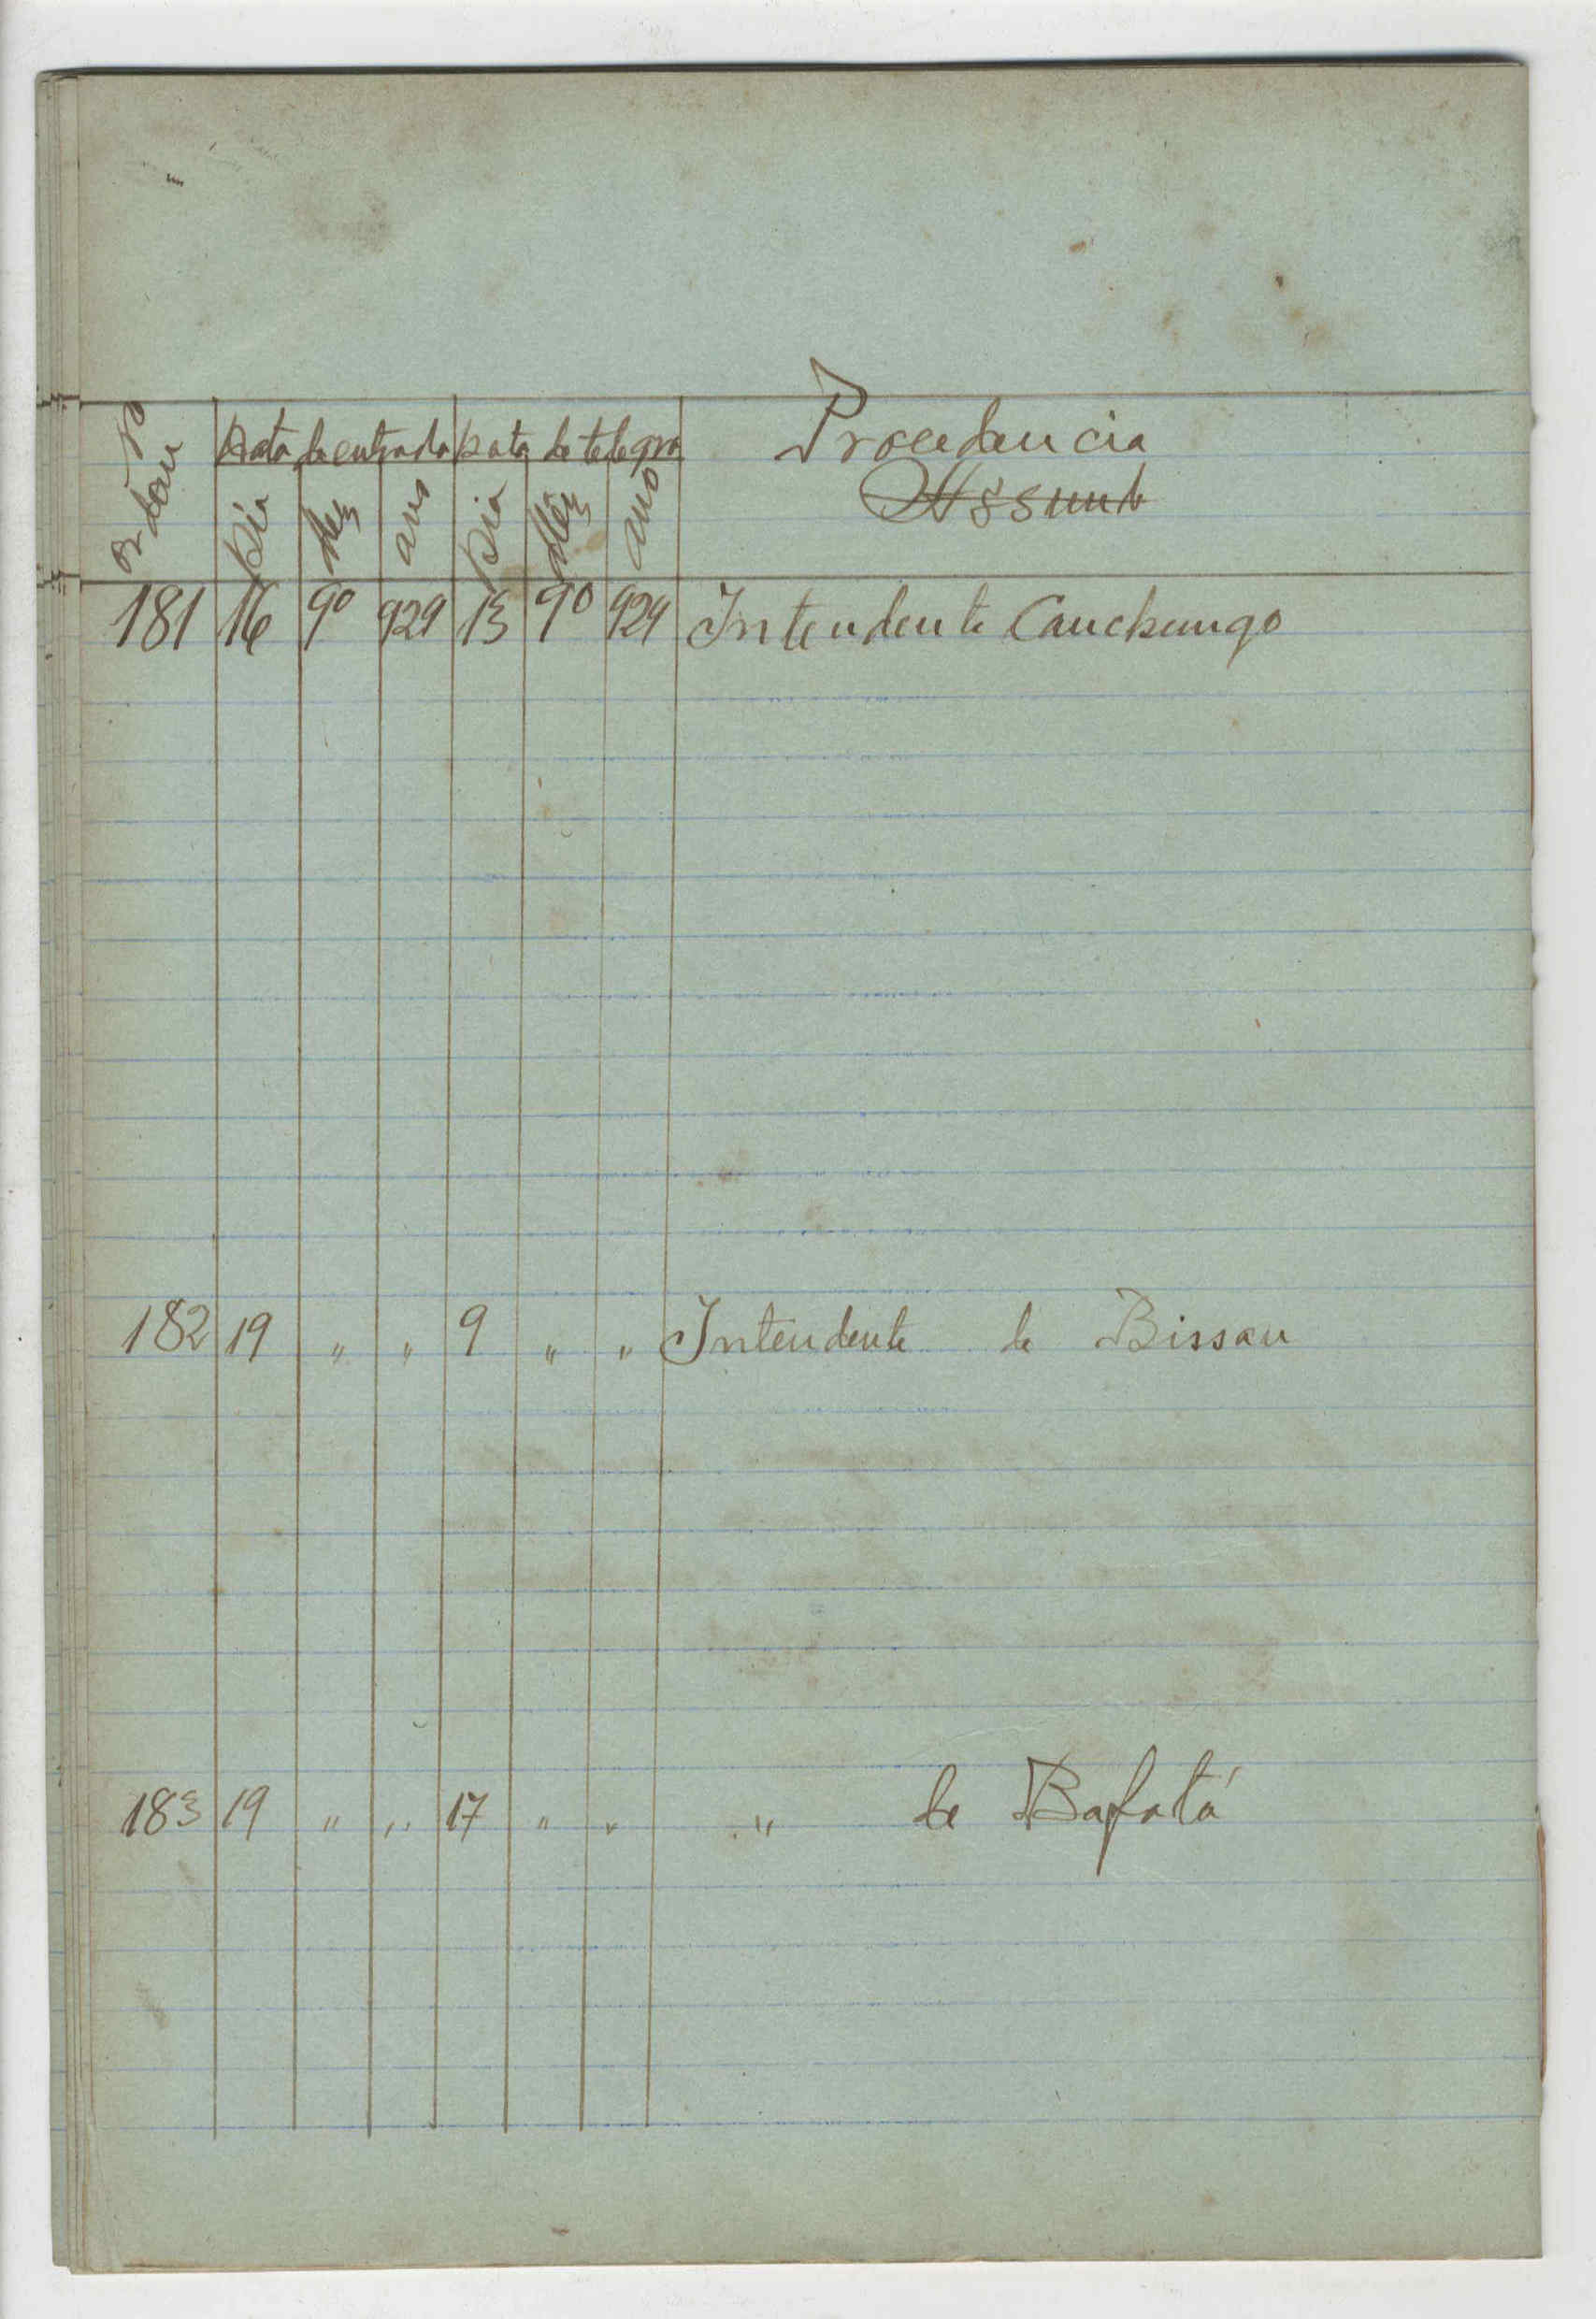 Nº ordem Data de entrada Data do telegra Procedencia
Dia Mez ano Dia Mêz ano Assunto
181 16 9º 929 13 9º 929 Intendente Canchungo
182 19 " " 9 " " Intendente de Bissau
183 19 " " 17 " " " de Bafatá